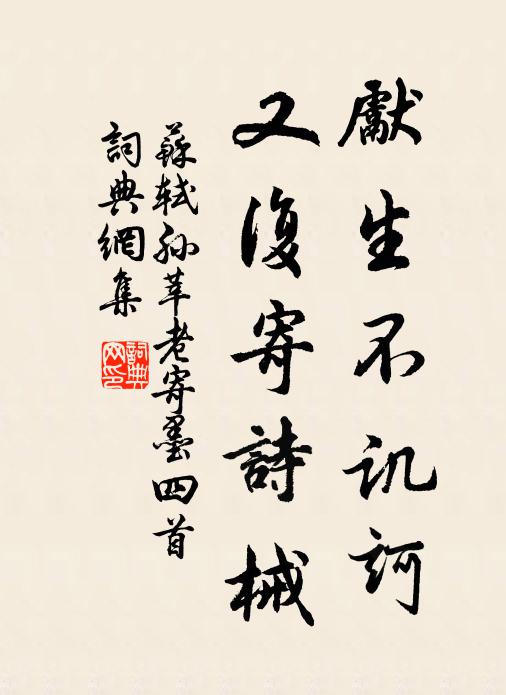 獻生不讥訶
又復寄詩械
蘇軾孫莘老寄墨四首
詞典網集
詞典網印